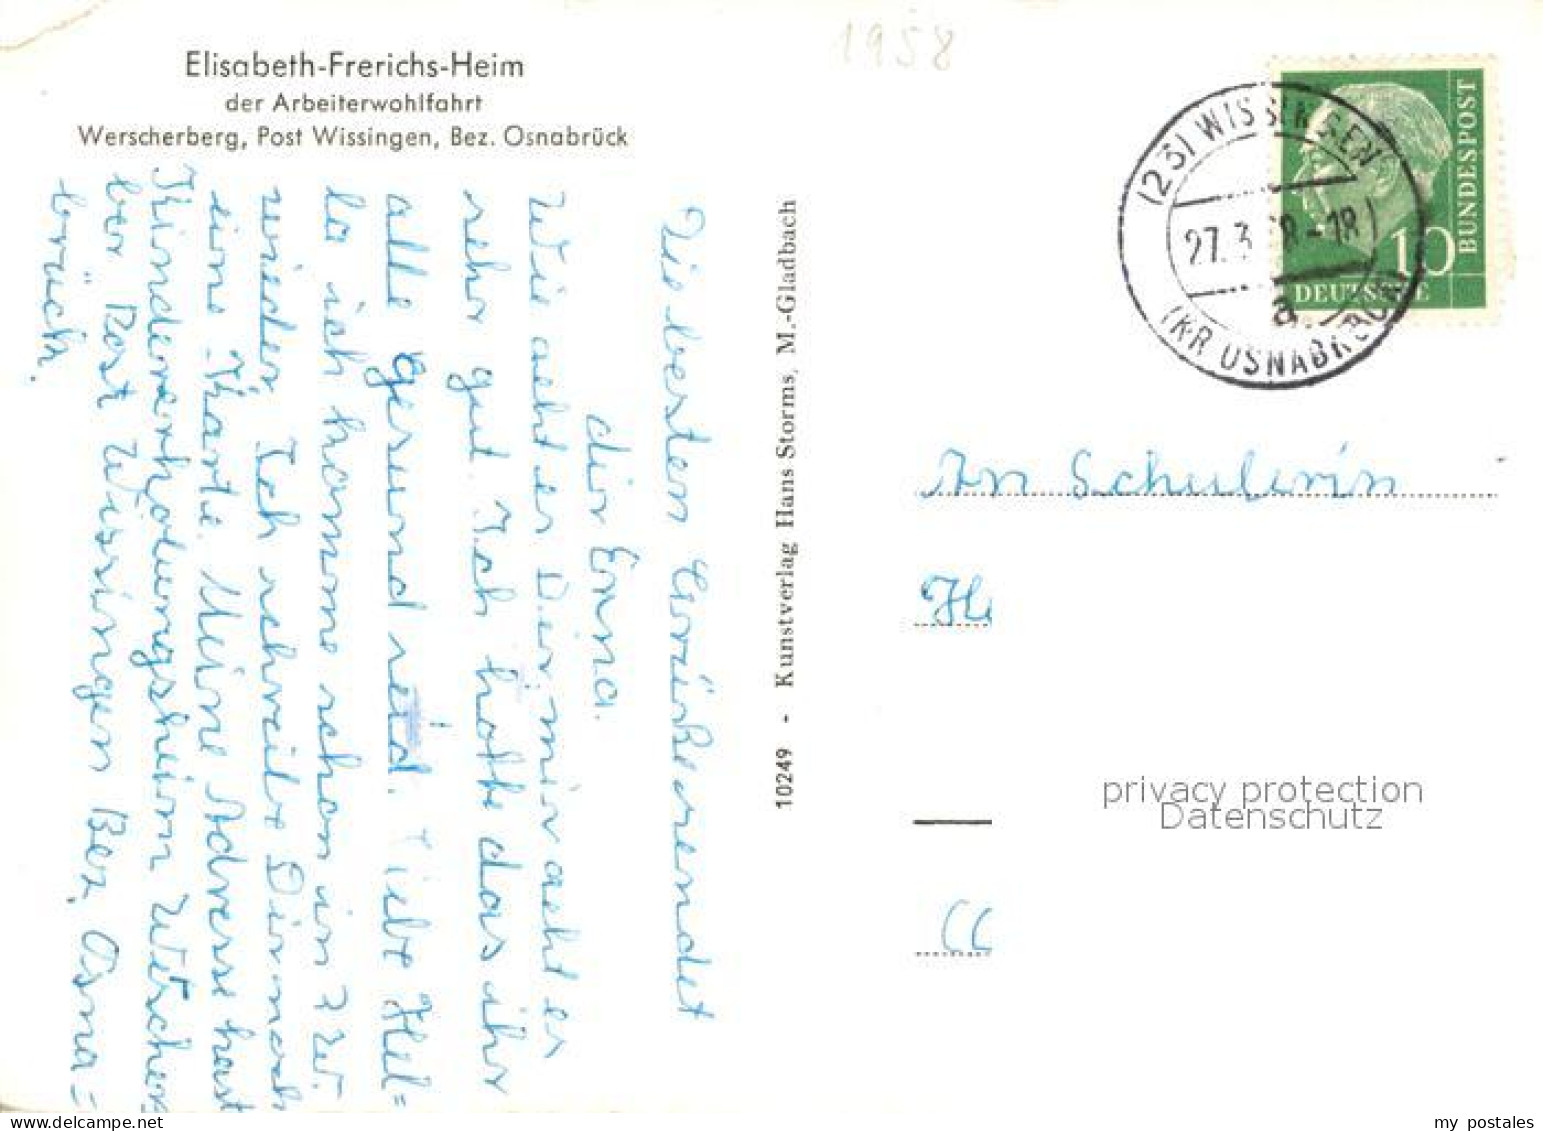 1958
Elisabeth-Frerichs-Heim
der Arbeiterwohlfahrt
Werscherberg, Post Wissingen, Bez. Osnabrück
Die besten Grüße sendet
dir Erna.
Wie geht es Dir, mir geht es
sehr gut. Ich hoffe das ihr
alle gesund seid. Liebe Hel=
la ich komme schon in 3 W.
wieder, Ich schreibe Dir noch
eine Karte. Meine Adresse hast
Kindererholungsheim Werscher
ber Post Wissingen Bez. Osna=
brück.
10249 - Kunstverlag Hans Storms, M.-Gladbach
(23) WISSINGEN
27.3.58-18
a
(KR OSNABRÜCK)
10
DEUTSCHE
BUNDESPOST
An Schulerin
He
privacy protection
Datenschutz
my postales